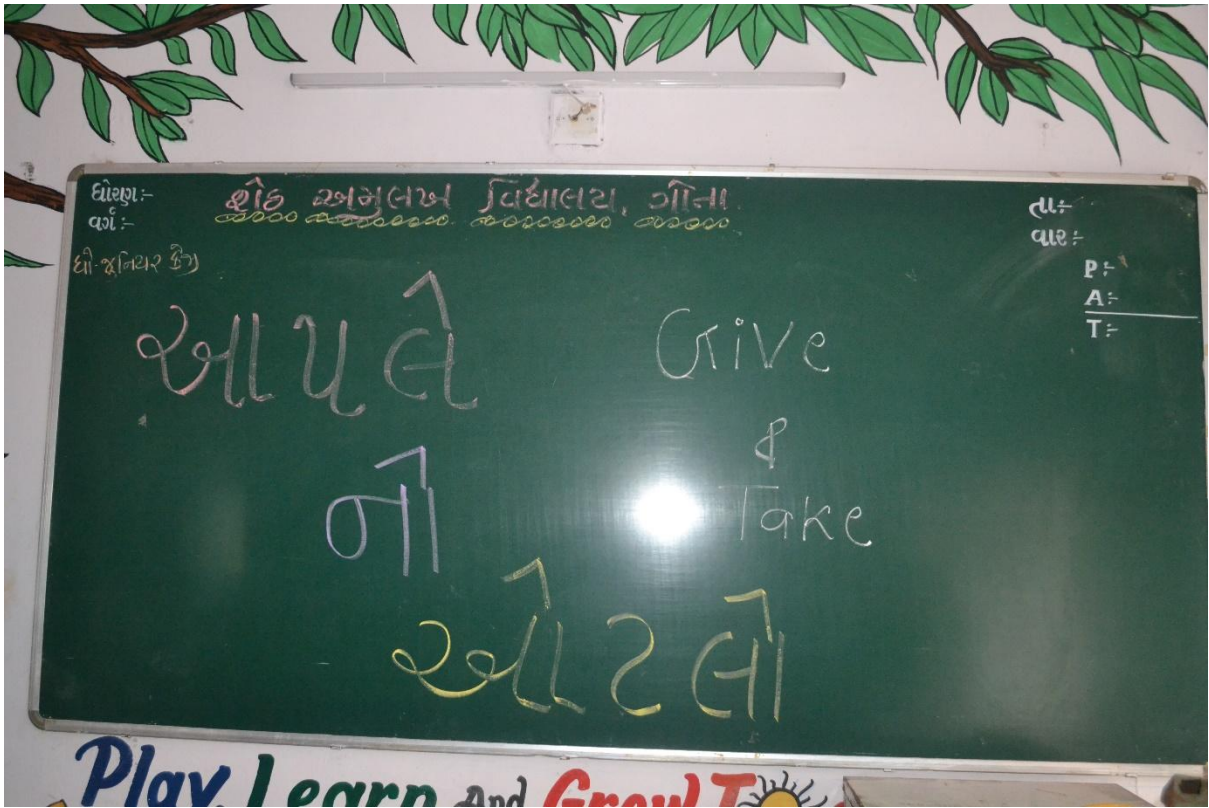 ધોરણ:-
વર્ગ:-
શેઠ અમુલખ વિદ્યાલય, ગોતા
તા:-
વાર:-
P:-
A:-
T:-
ધો-જૂનિયર કેજી
આપલે
નો
ઓટલો
Give
&
Take
Play, Learn And Grow T